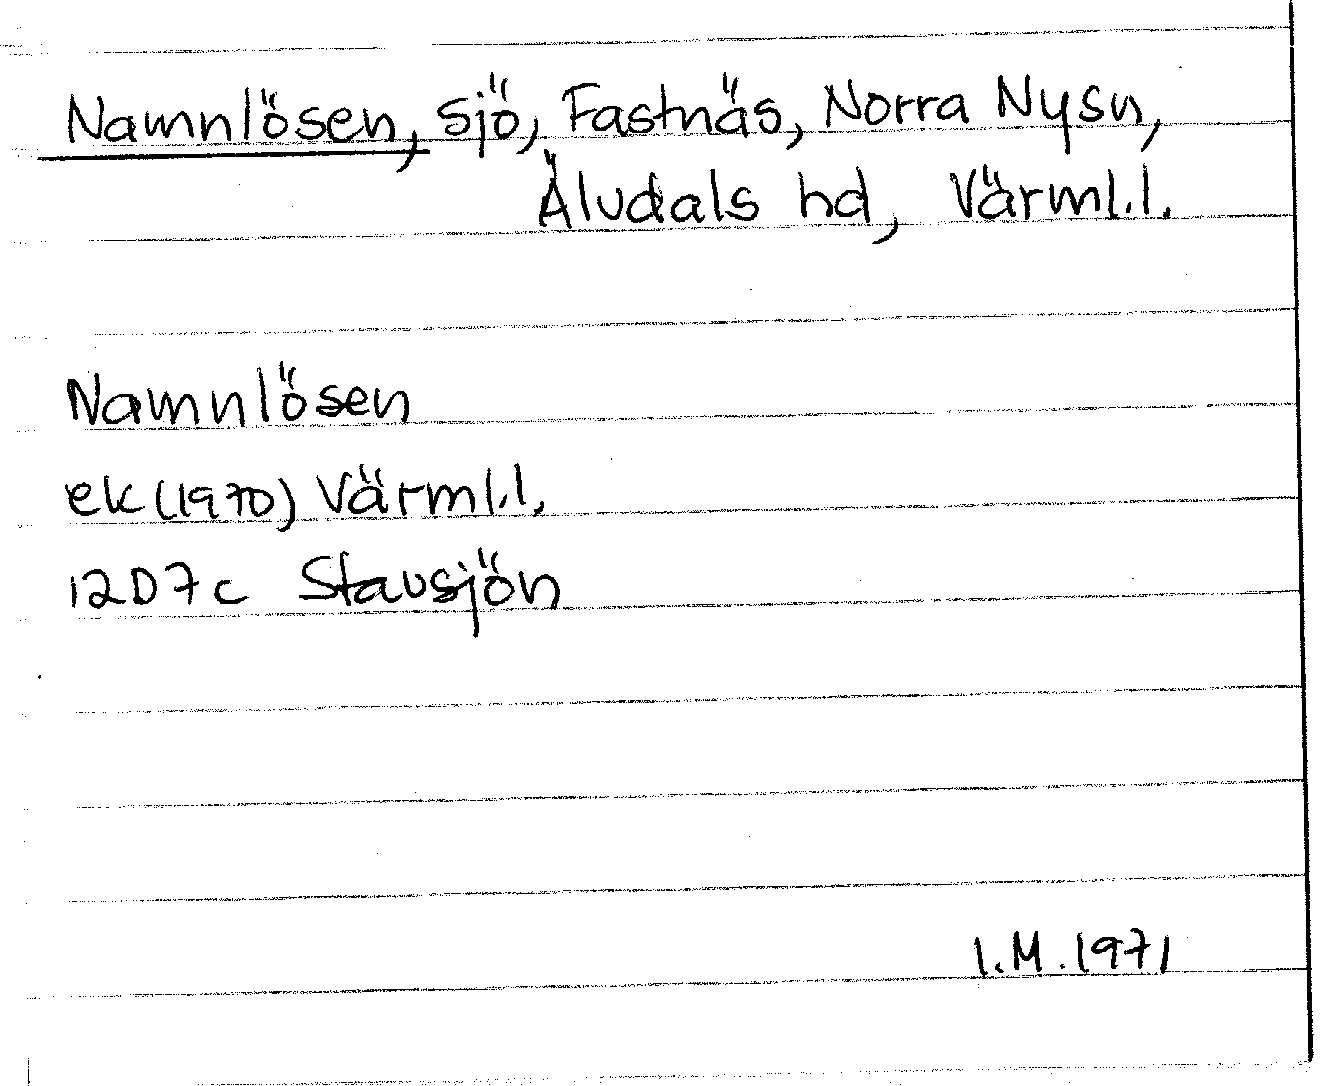 Namnlösen, sjö, Fastnäs, Norra Nysn,
Älvdals hd, Värml.l.
Namnlösen
ek (1970) Värml.l.
12D7c Stavsjön
I.M. 1971